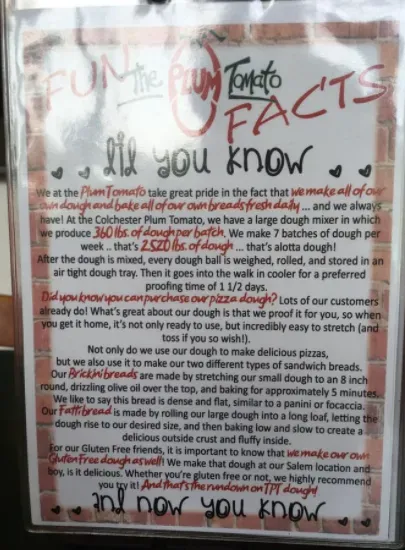 FUN the PLUM Tomato FACTS
did you know
We at the Plum Tomato take great pride in the fact that we make all of our
own dough and bake all of our own breads fresh daily ... and we always
have! At the Colchester Plum Tomato, we have a large dough mixer in which
we produce 360 lbs. of dough per batch. We make 7 batches of dough per
week .. that's 2520 lbs. of dough ... that's alotta dough!
After the dough is mixed, every dough ball is weighed, rolled, and stored in an
air tight dough tray. Then it goes into the walk in cooler for a preferred
proofing time of 1 1/2 days.
Did you know you can purchase our pizza dough? Lots of our customers
already do! What's great about our dough is that we proof it for you, so when
you get it home, it's not only ready to use, but incredibly easy to stretch (and
toss if you so wish!).
Not only do we use our dough to make delicious pizzas,
but we also use it to make our two different types of sandwich breads.
Our Brick'ni breads are made by stretching our small dough to an 8 inch
round, drizzling olive oil over the top, and baking for approximately 5 minutes.
We like to say this bread is dense and flat, similar to a panini or focaccia.
Our Fatti bread is made by rolling our large dough into a long loaf, letting the
dough rise to our desired size, and then baking low and slow to create a
delicious outside crust and fluffy inside.
For our Gluten Free friends, it is important to know that we make our own
Gluten Free dough as well! We make that dough at our Salem location and
boy, is it delicious. Whether you're gluten free or not, we highly recommend
you try it! And that's the rundown on TPT dough!
and now you know